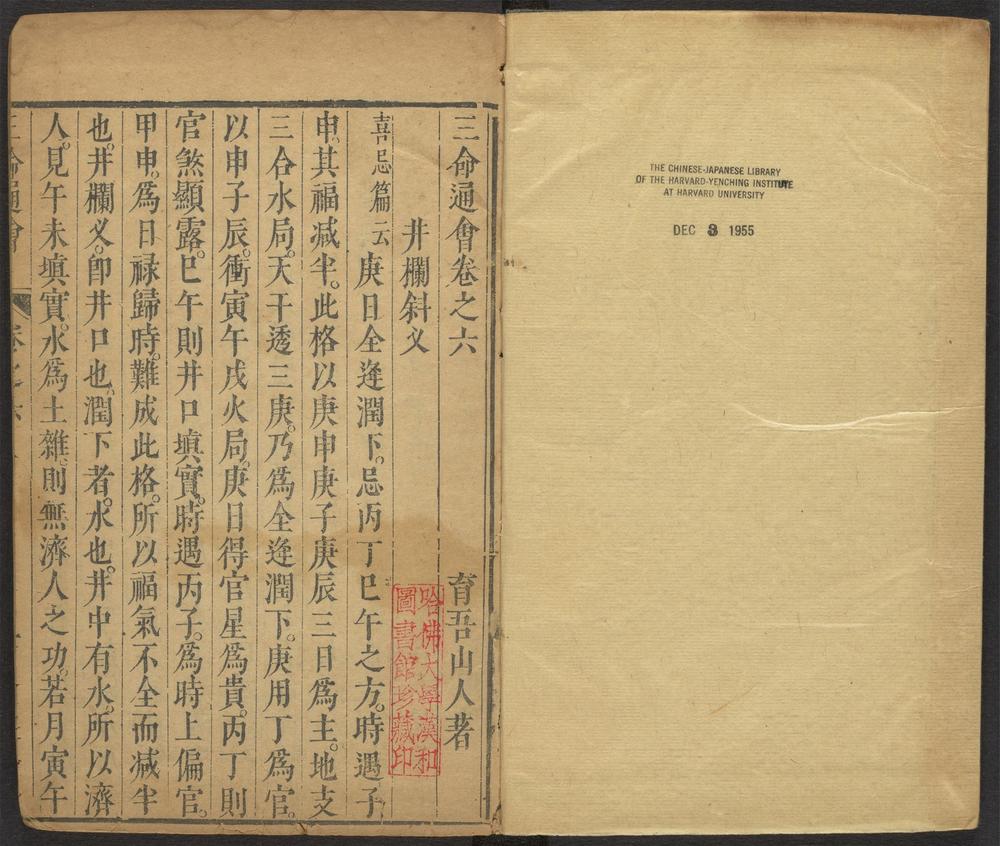 THE CHINESE-JAPANESE LIBRARY
OF THE HARVARD-YENCHING INSTITUTE
AT HARVARD UNIVERSITY
DEC 3 1955
三命通會卷之六
育吾山人著
井欄斜义
喜忌篇云庚日全逢潤下。忌丙丁巳午之方。時遇子
申。其福减半。此格以庚申庚子庚辰三日爲主。地支
三合水局。天干透三庚。乃爲全逢潤下。庚用丁爲官。
以申子辰。衝寅午戌火局。庚日得官星爲貴。丙丁則
官煞顯露。巳午則井口填實。時遇丙子。爲時上偏官。
甲申。爲日禄歸時。難成此格。所以福氣不全而减半
也。井欄义。即井口也。潤下者。水也。井中有水。所以濟
人。見午未填實。水爲土雜。則無濟人之功。若月寅午
哈佛大學漢和
圖書館珍藏印